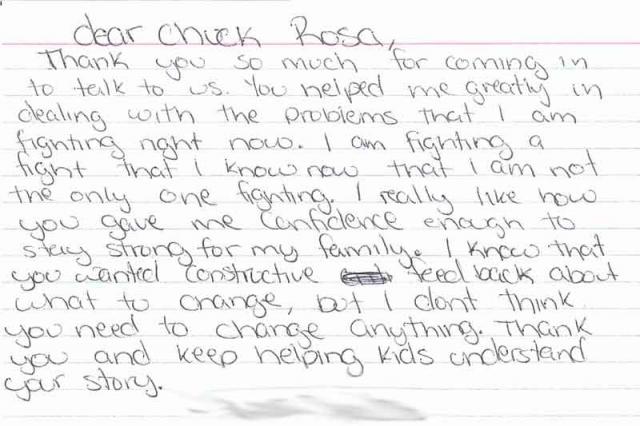 dear Chuck Rosa,
Thank you so much for coming in
to talk to us. You helped me greatly in
dealing with the problems that I am
fighting right now. I am fighting a
fight that I know now that I am not
the only one fighting. I really like how
you gave me confidence enough to
stay strong for my family. I know that
you wanted constructive feed back about
what to change, but I dont think
you need to change anything. Thank
you and keep helping kids understand
your story.